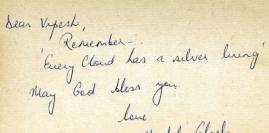 Dear Vipesh,
Remember—
'Every Cloud has a silver lining'
May God bless you
love